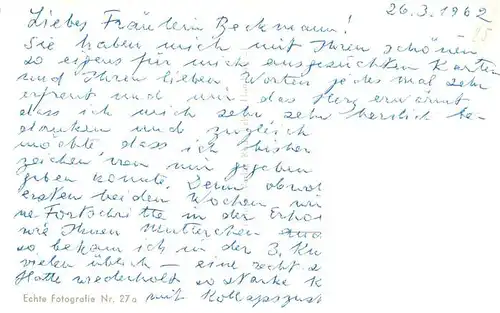 26.3.1962
Liebes Fräulein Beckmann!
Sie haben mich mit Ihren schönen
so eigens für mich ausgesuchten Karten
und Ihren lieben Worten jedesmal sehr
erfreut und mir das Herz erwärmt
dass ich mich sehr, sehr herzlich be-
danken und zugleich
möchte, dass ich bisher
zeichen von mir gegeben
geben konnte. Denn obwol
ersten beiden Wochen
ne Fortschritte in der Erho
wie Ihnen Mütterchen
so bekam ich in der 3. Ku
vielen üblich – eine recht s
Hatte wiederholt so starke K
mit Kollapszust
Echte Fotografie Nr. 27a